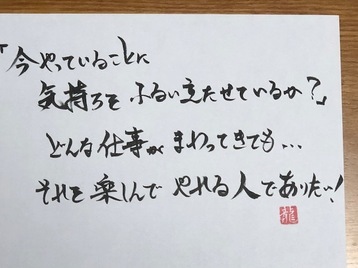 「今やっていることに
気持ちをふるい立たせているか?」
どんな仕事がまわってきても...
それを楽しんでやれる人でありたい!
龍